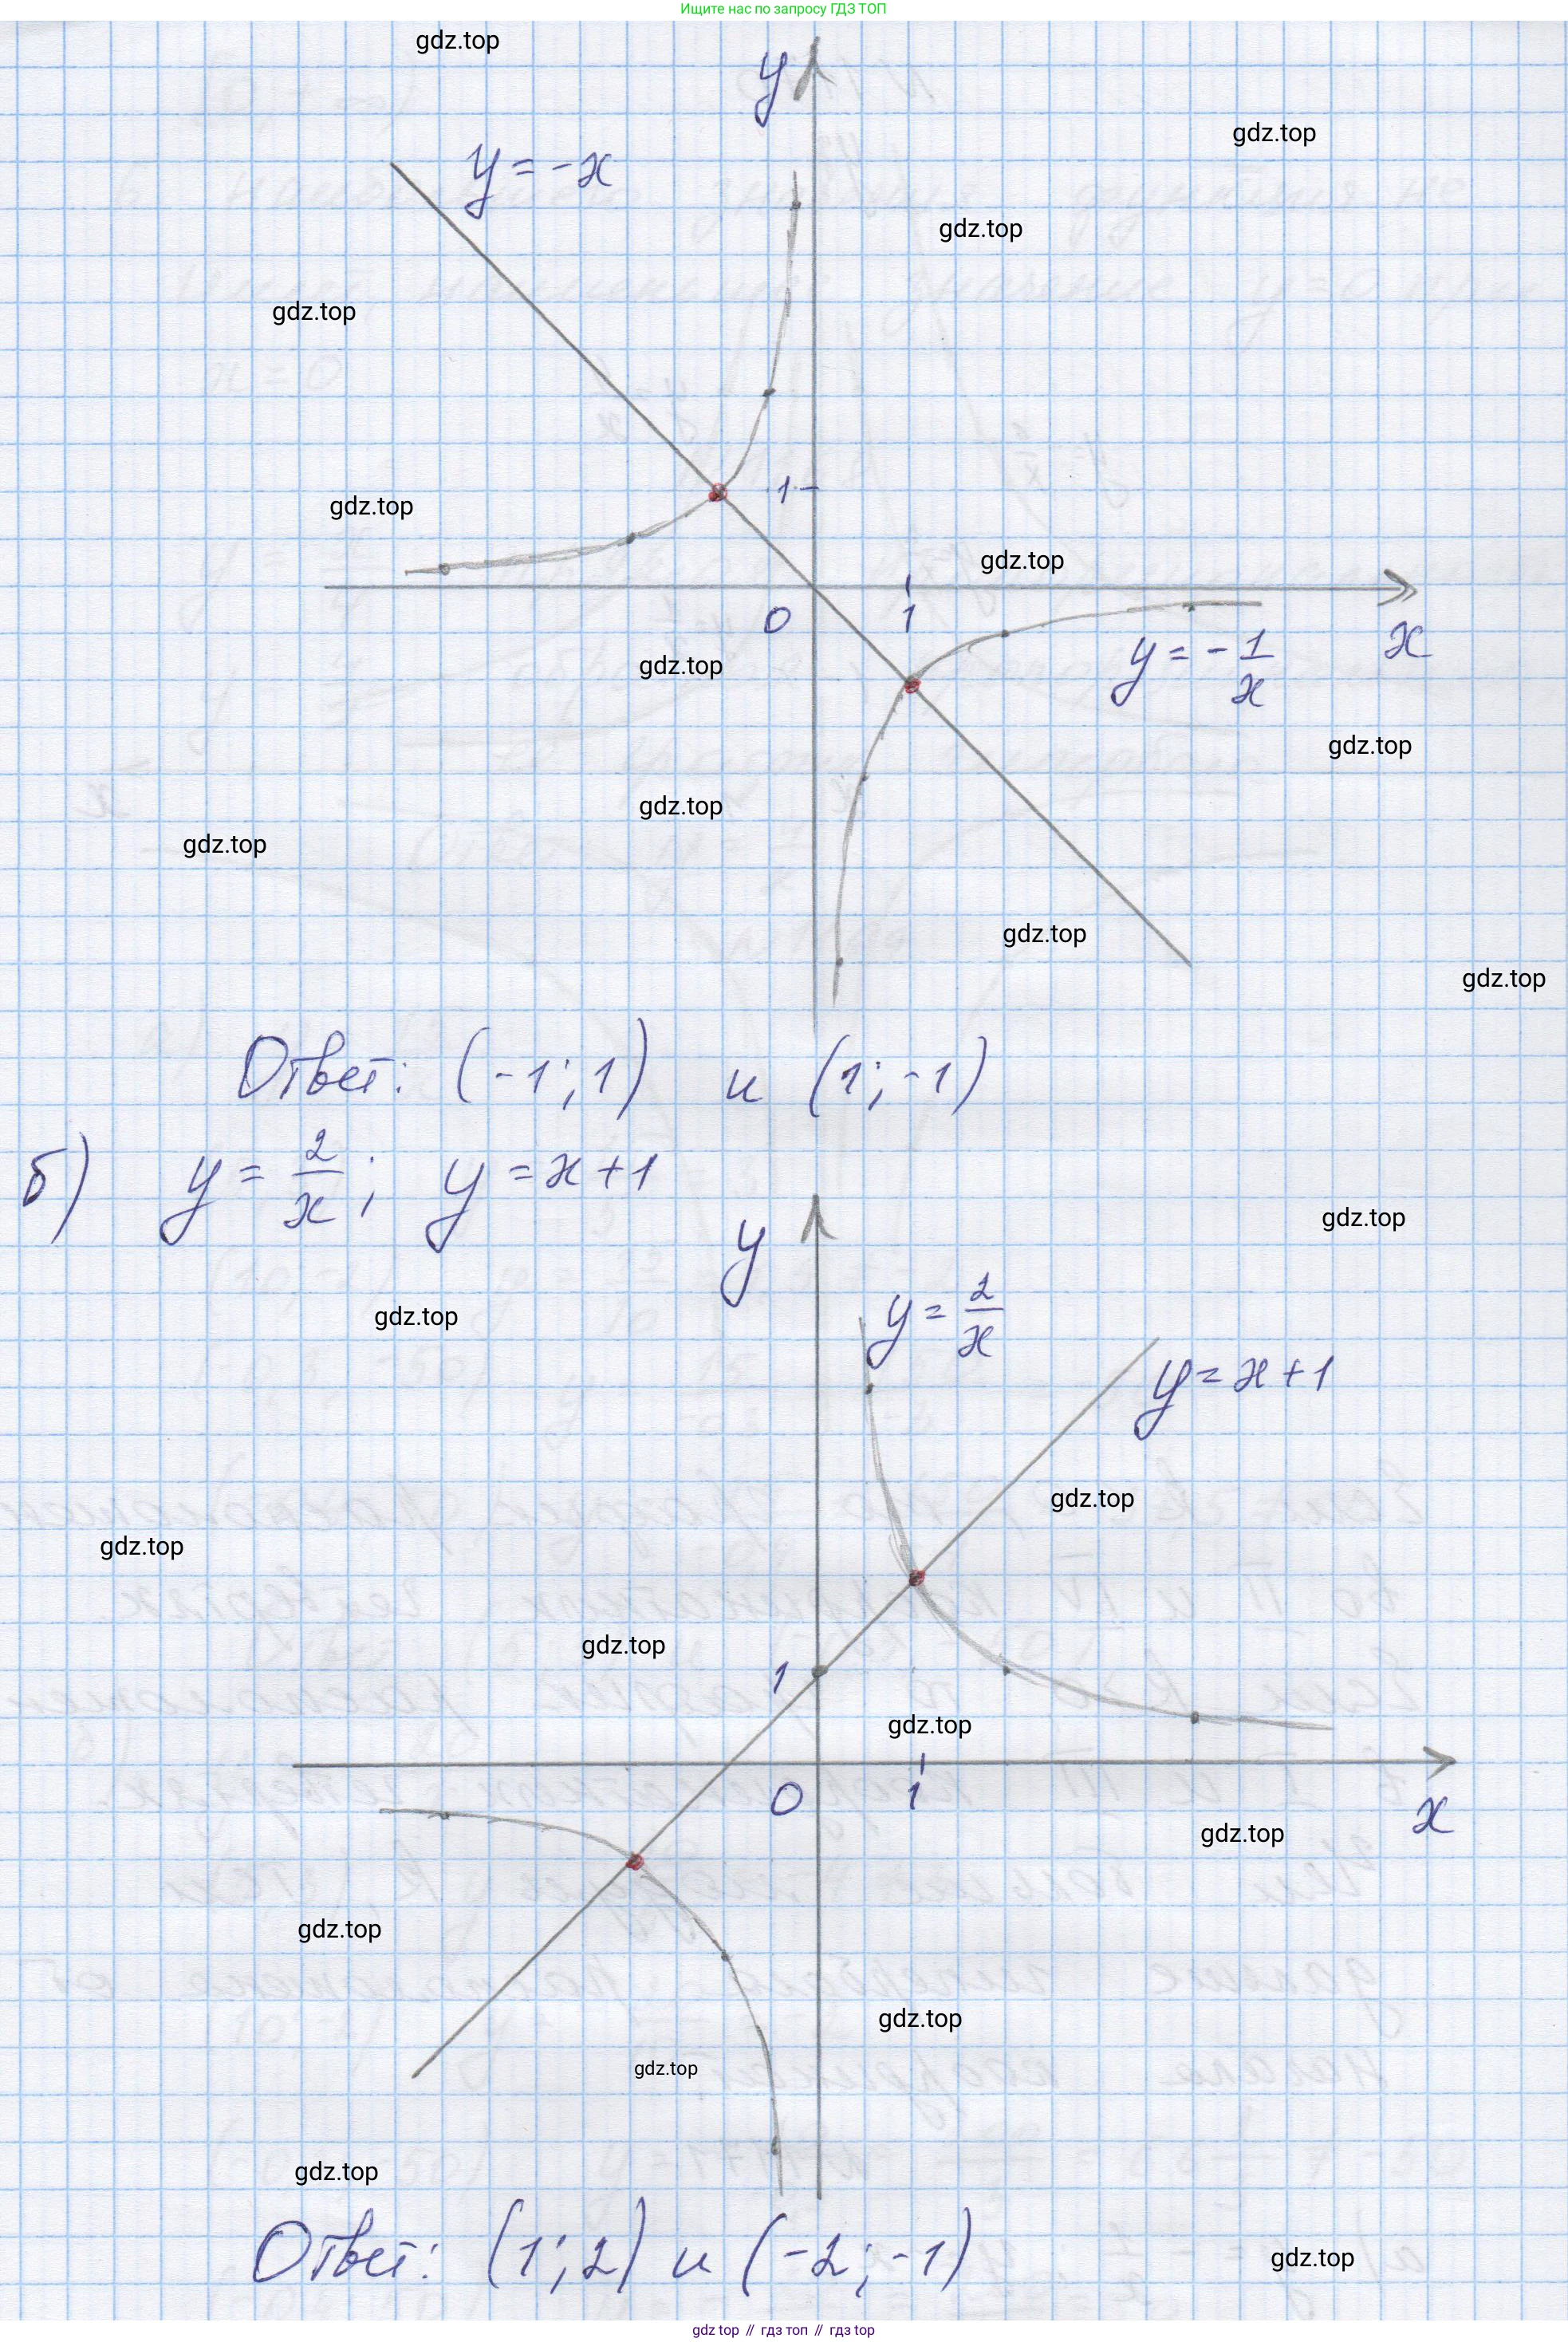 Ищите нас по запросу ГДЗ ТОП
gdz.top
y
gdz.top
y = -x
gdz.top
gdz.top
1
gdz.top
gdz.top
0
1
x
y = - 1/x
gdz.top
gdz.top
gdz.top
gdz.top
gdz.top
gdz.top
Ответ: (-1; 1) и (1; -1)
б) y = 2/x; y = x + 1
gdz.top
y
y = 2/x
gdz.top
y = x + 1
gdz.top
gdz.top
gdz.top
1
gdz.top
0
1
x
gdz.top
gdz.top
gdz.top
gdz.top
gdz.top
Ответ: (1; 2) и (-2; -1)
gdz.top
gdz top // гдз топ // гдз top